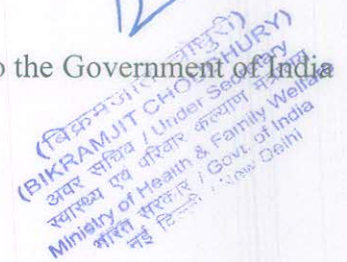 o the Government of India
(बिक्रमजीत चौधुरी)
(BIKRAMJIT CHOUDHURY)
अवर सचिव / Under Secretary
स्वास्थ्य एवं परिवार कल्याण मंत्रालय
Ministry of Health & Family Welfare
भारत सरकार / Govt. of India
नई दिल्ली / New Delhi